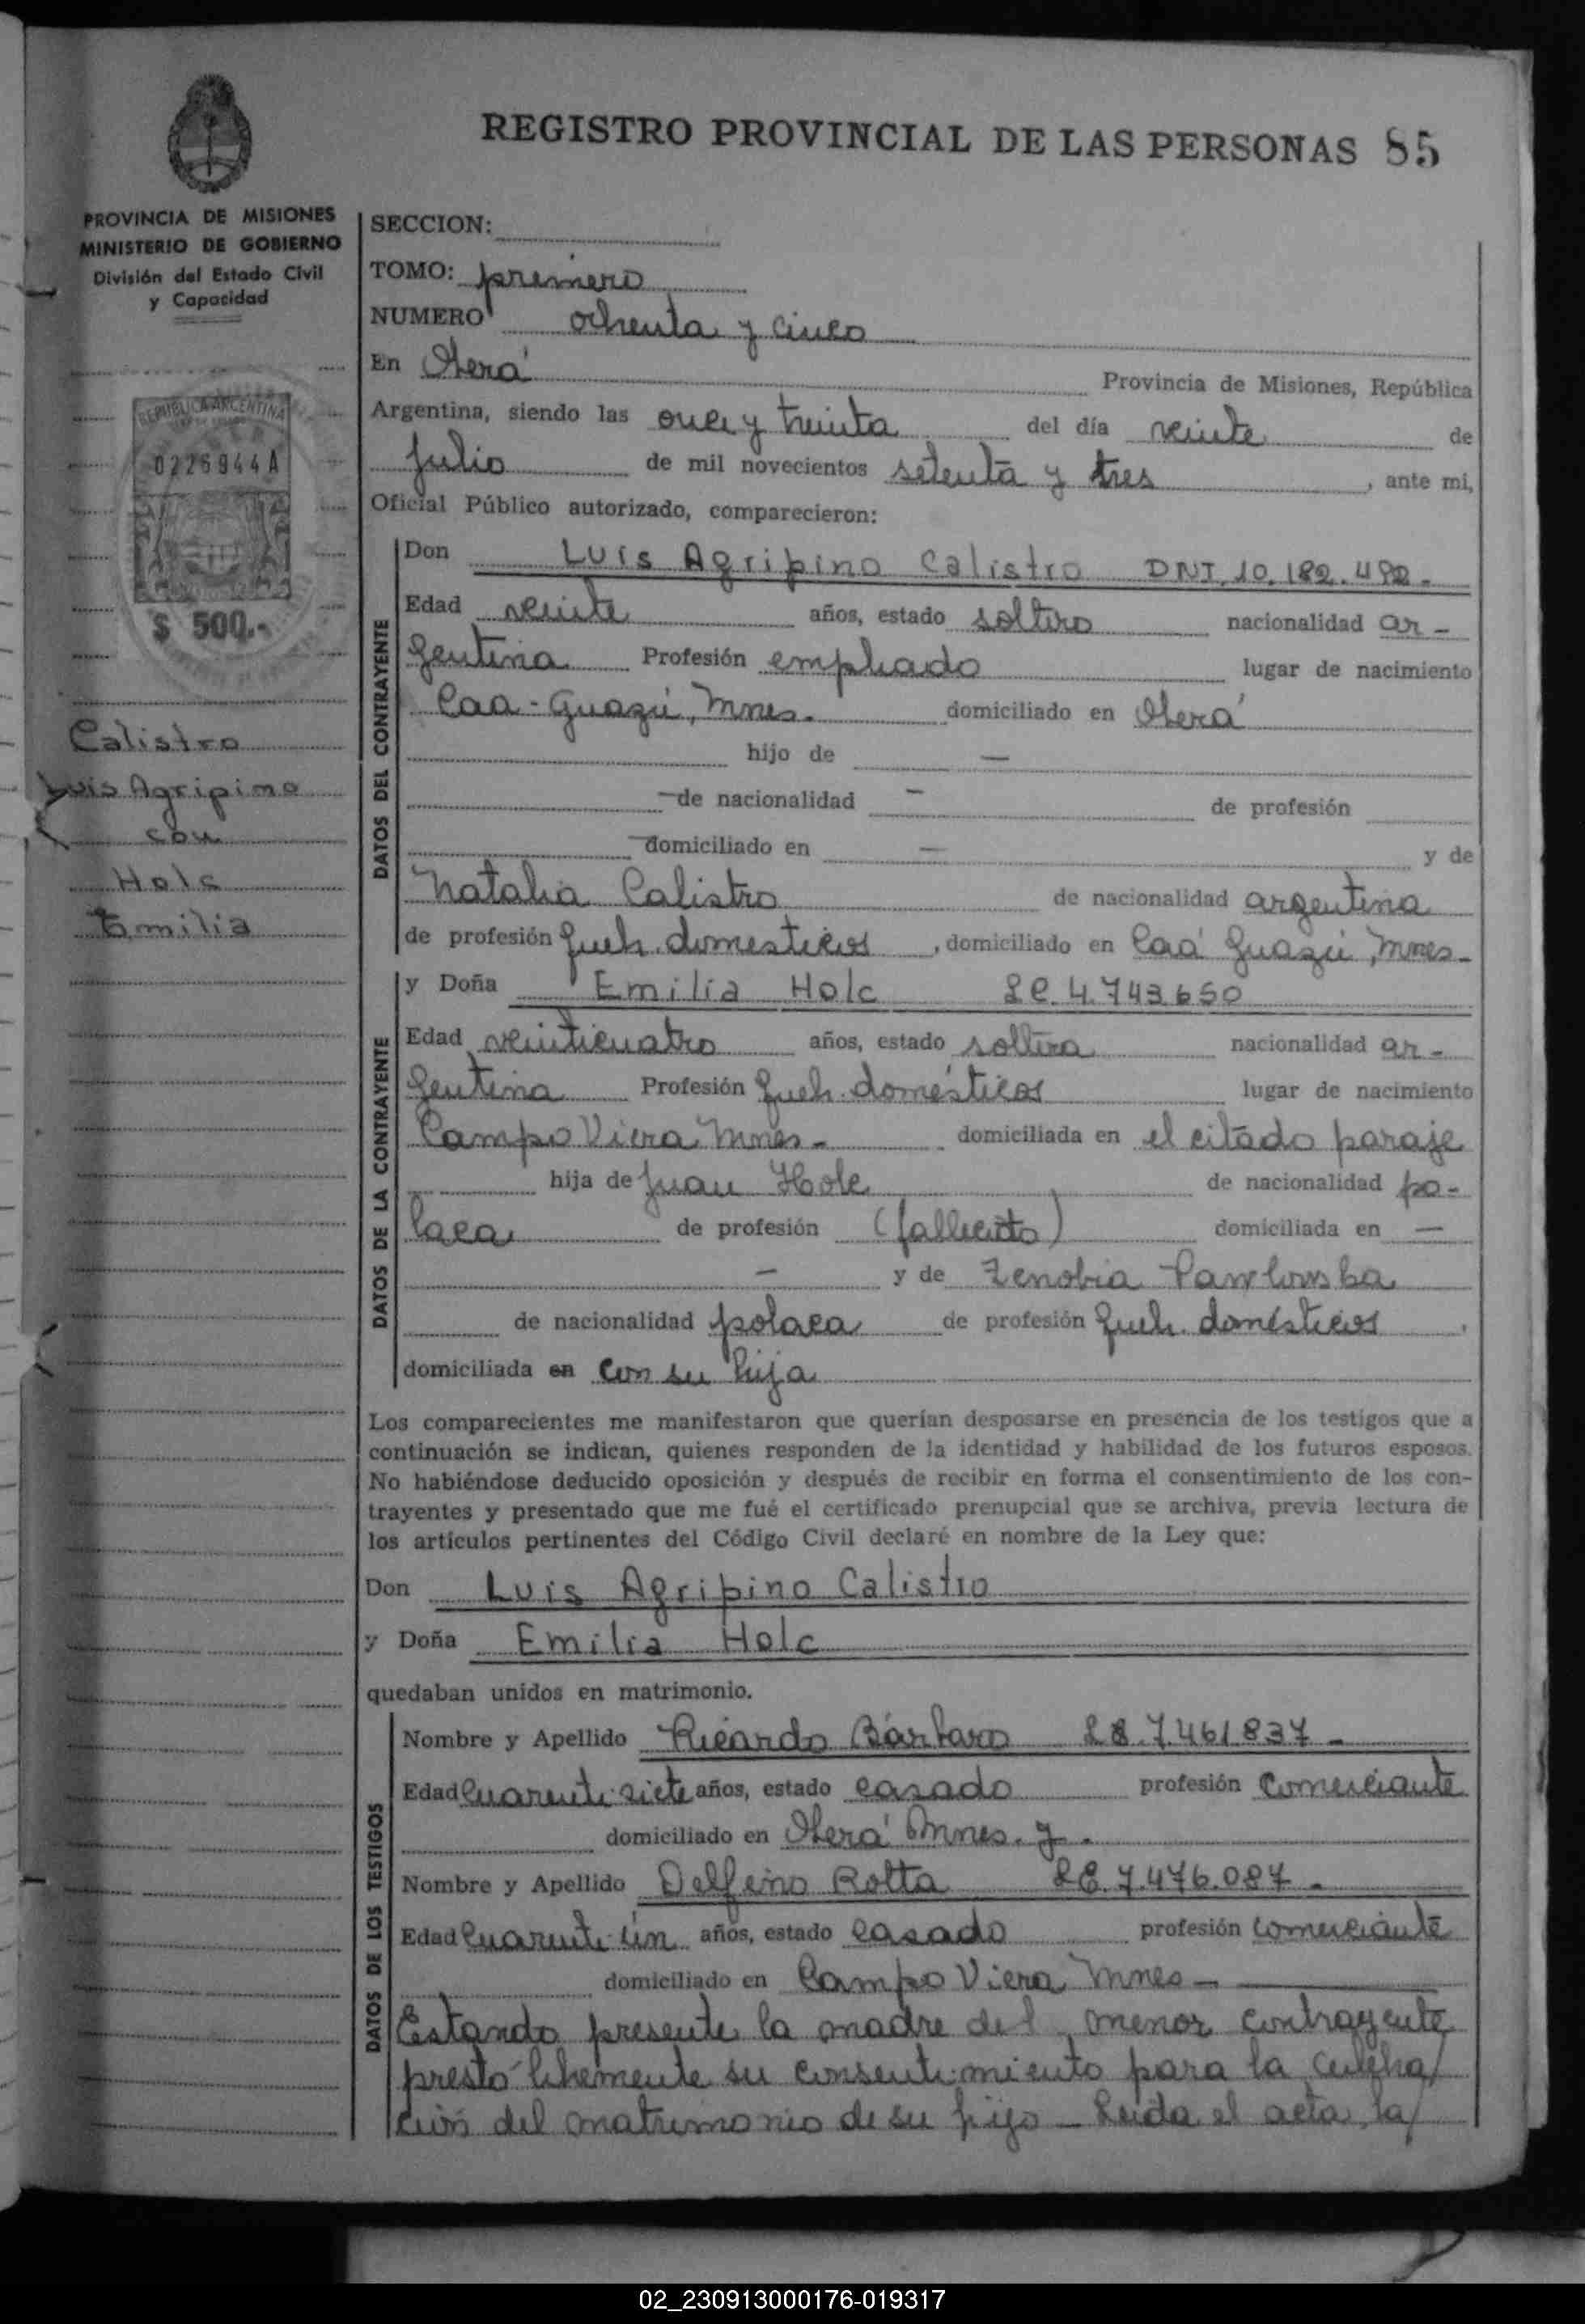 REGISTRO PROVINCIAL DE LAS PERSONAS 85
PROVINCIA DE MISIONES
MINISTERIO DE GOBIERNO
División del Estado Civil
y Capacidad
REPUBLICA ARGENTINA
0226944A
$ 500.-
Calistro
Luis Agripino
con
Holc
Emilia
SECCION:
TOMO: primero
NUMERO ochenta y cinco
En Oberá Provincia de Misiones, República
Argentina, siendo las once y treinta del día veinte de
julio de mil novecientos setenta y tres, ante mi,
Oficial Público autorizado, comparecieron:
DATOS DEL CONTRAYENTE
Don Luis Agripino Calistro DNI. 10.182.492.
Edad veinte años, estado soltero nacionalidad ar-
gentina Profesión empleado lugar de nacimiento
Caa-Guazú, Mnes. domiciliado en Oberá
hijo de —
— de nacionalidad — de profesión
— domiciliado en — y de
Natalia Calistro de nacionalidad argentina
de profesión queh. domesticos, domiciliado en Caá Guazú, Mnes-
DATOS DE LA CONTRAYENTE
y Doña Emilia Holc LC. 4.743.650
Edad veinticuatro años, estado soltera nacionalidad ar-
gentina Profesión queh. domésticos lugar de nacimiento
Campo Viera Mnes- domiciliada en el citado paraje
hija de Juan Holc de nacionalidad po-
laca de profesión (fallecido) domiciliada en —
— y de Zenobia Pawlowska
de nacionalidad polaca de profesión queh. domésticos,
domiciliada en con su hija
Los comparecientes me manifestaron que querían desposarse en presencia de los testigos que a
continuación se indican, quienes responden de la identidad y habilidad de los futuros esposos.
No habiéndose deducido oposición y después de recibir en forma el consentimiento de los con-
trayentes y presentado que me fué el certificado prenupcial que se archiva, previa lectura de
los artículos pertinentes del Código Civil declaré en nombre de la Ley que:
Don Luis Agripino Calistro
y Doña Emilia Holc
quedaban unidos en matrimonio.
DATOS DE LOS TESTIGOS
Nombre y Apellido Ricardo Bárbaro LE. 7.461.837-
Edad cuarenti siete años, estado casado profesión comerciante
domiciliado en Oberá Mnes. y.
Nombre y Apellido Delfino Rotta LE. 7.476.087.
Edad cuarenti ún años, estado casado profesión comerciante
domiciliado en Campo Viera Mnes-
Estando presente la madre del menor contrayente
prestó libremente su consentimiento para la celebra/
ción del matrimonio de su hijo - Leida el acta, la/
02_230913000176-019317